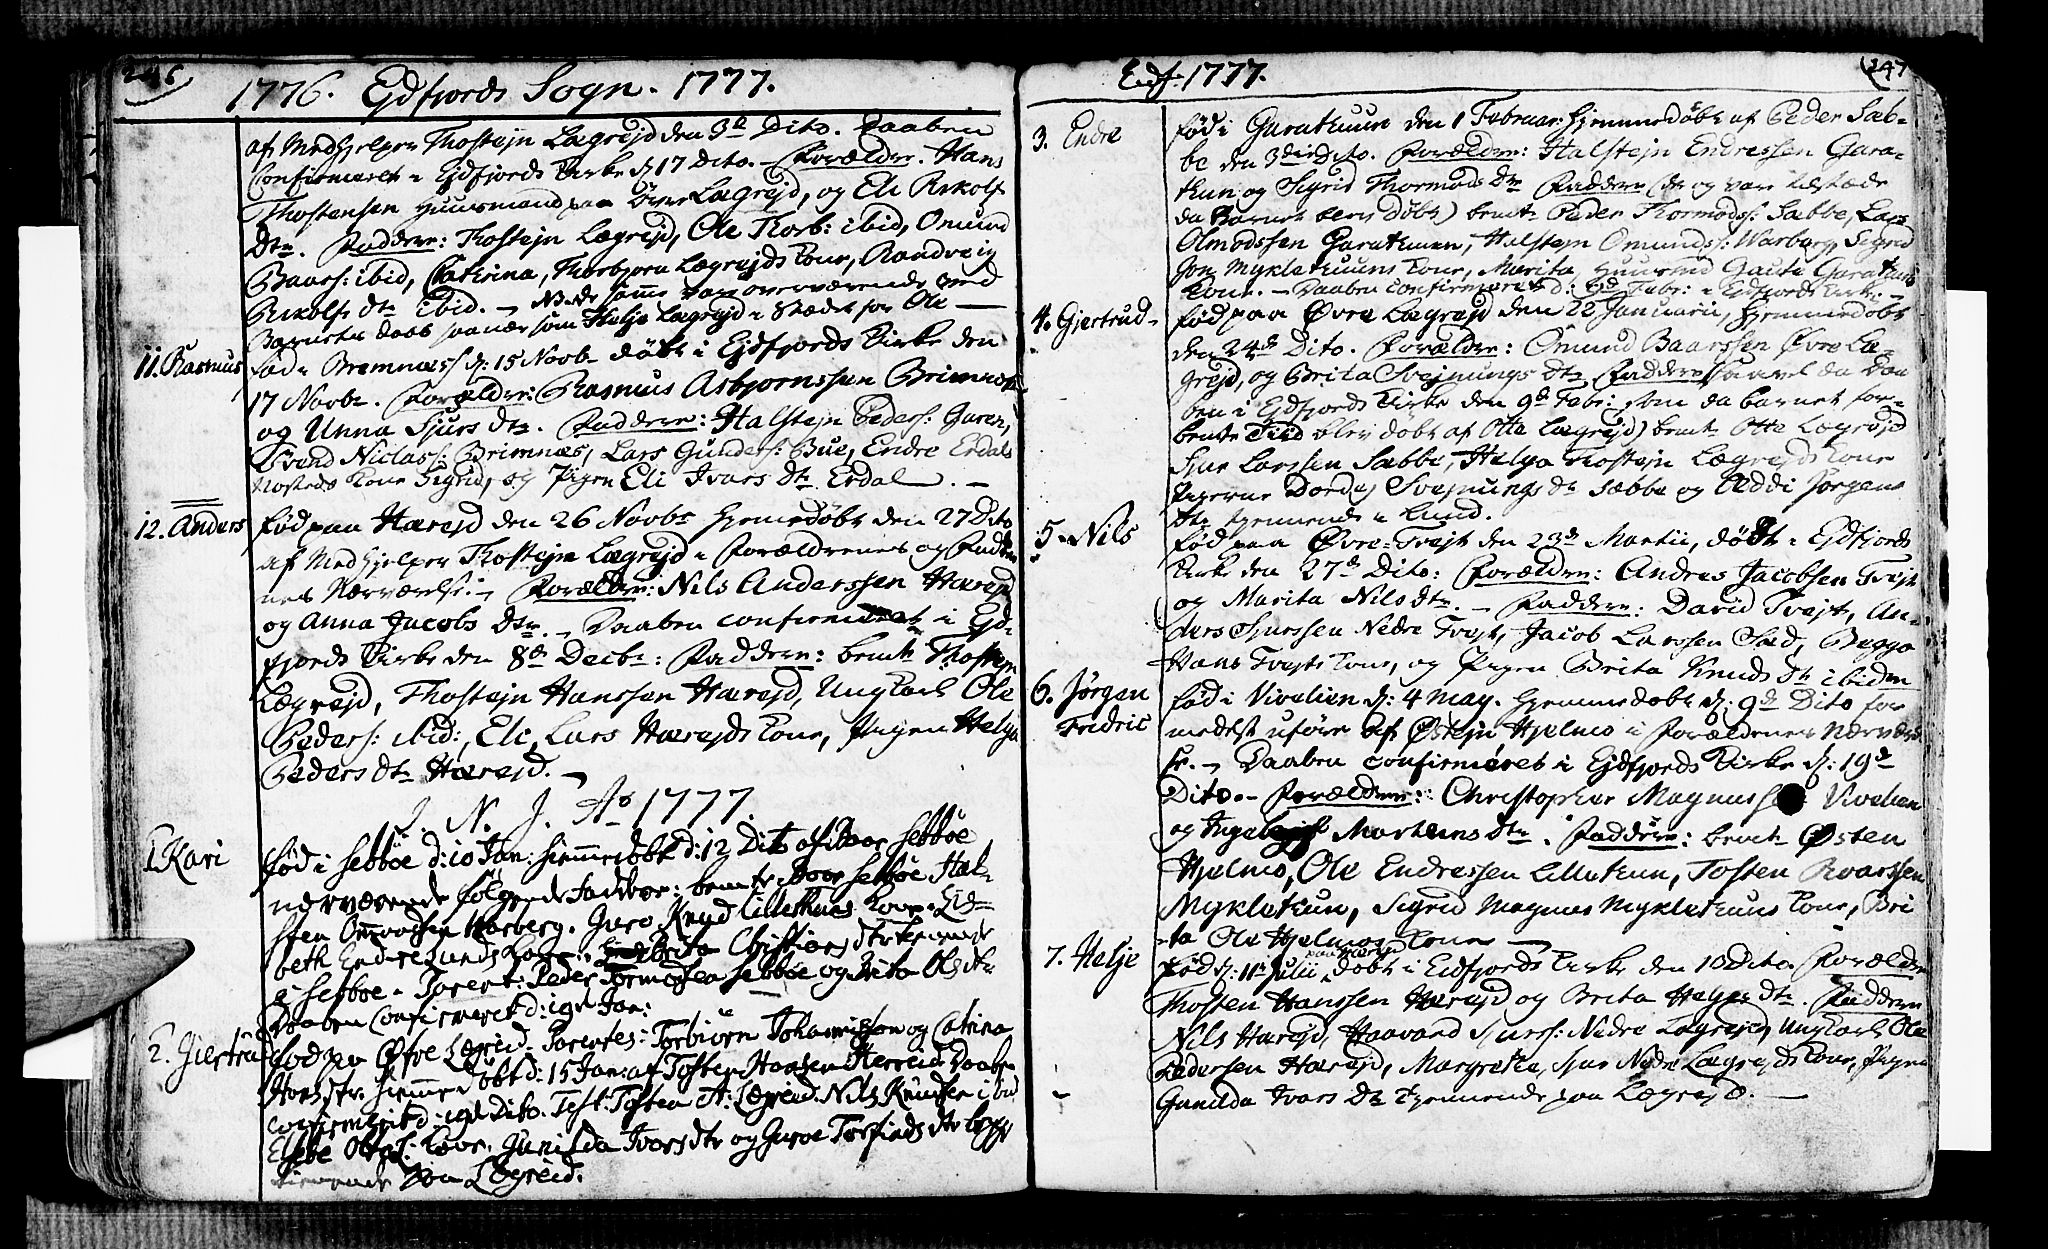 246
1776. Ejdfjords Sogn. 1777.
af Medhjelper Thostejn Lægrejd den 3d Dito. Daaben
Confirmeret i Ejdfjords Kirke d. 17 Dito. - Forældre. Hans
Thostensen Huusmand paa Øvre Lægrejd, og Eli Rikolfs
Dtr. Faddere: Thostejn Lægrejd, Ole Torb: ibid, Omund
Baars: ibid, Catrina, Thorbjørn Lægrejds Kone, Randveig
Rikolfs dtr ibid. - overværende ved
Barnets daab saavær som Helje Lægrejd i Stædet for Ole
11. Rasmus
fød i Bremnæs d. 15 Novb. døbt i Ejdfjords Kirke den
17 Novbr. Forældre: Rasmus Asbjørnssen Brimnæs
og Unna Sjurs dtr. Faddere: Halstejn Peders: Garen,
Svend Niclass: Brimnæs, Lars Gunders: Bue, Endre Erdals
Kone Sigrid, og Pigen Eli Ivars Dtr Erdal. -
12. Anders
fød paa Hærejd den 26 Novbr hjemedøbt den 27 Dito
af Medhjelper Thostejn Lægrejd i Forældrenes og Fadder
nes Nærværelse. - Forældre: Nils Anderssen Hærejd
og Anna Jacobs Dtr. - Daaben confirmeret i Ejd-
fjords Kirke den 8de Decbr: Faddere: bemte Thostejn
Lægrejd, Thostejn Hanssen Hærejd, Ungkarl Ole
Peders: ibid:, Eli, Lars Hærejds Kone, Pigen Helga
Peders dtr Hærejd. -
J. N. J. Ao 1777.
1 Kari
fød i Sebbøe d: 10 Jan: hiemmedøbt d: 12 Dito af Peder Sebbøe
nærværende følgende Faddere: bemte Peder Sebbøe Hal-
sten Omundsen Warberg. Guro Knud Lilletuns Kone. Lis-
beth Endre Lunds Kone. Brita Christians dtr tienende
i Sebbøe. Parent: Peder Tormodsen Sebbøe og Brita Ols dtr
Daaben Confirmeret d: 19de Jan:
2. Giertrud
fød paa Øfre Lægreid. Parentes: Torbiørn Johannissen og Catrina
Hans dtr. hiemmedøbt d: 15 Jan: af Tosten Hansen Herreid Daaben
confirmeret d: 19de Dito. Test: Tosten A: Lægreid. Nils Knudsen ibid
Elsebe Kone. Gunilda Ivers dtr og Guroe Torfinds dtr begge
tienende paa Lægreid.
Eidf: 1777.
247
3. Endre
fød i Garatuun den 1 Februar: hjemmedøbt af Peder Sæb-
be den 3die Dito. Forældre: Halstejn Endressen Gara-
tun og Sigrid Thormods Dtr Faddere (der og vare tilstæde
da Barnet blev døbt) bemte Peder Thormods: Sæbbe, Lars
Olmodssen Garatuun, Halstejn Omunds: Warberg, Sigrid
Jon Mykletuuns Kone, Marita, Huusmd Gaute Garatuns
Kone. - Daaben confirmeret d: 9d Febr: i Ejdfjords Kirke. -
4. Giertrud
fød paa Øvre Lægrejd den 22 Januarii, hjemmedøbt
den 24de Dito. Forældre: Omund Baarssen Øvre Læ-
grejd, og Brita Svejnungs dtr Faddere (saavel da Daa
ben i Ejdfjords Kirke den 9d Febr: som da barnet for-
bemte Tiid blev døbt af Otte Lægrejd) bemte Otte Lægrejd
Sjur Larssen Sæbbe, Helga Thostejn Lægrejds Kone
Pigerne Dorde Svejnungs dtr Sæbbe og Oddi Jørgens
dtr tjennende i Lund.
5. Nils
fød paa Øvre-Tvejt den 23de Martii, døbt i Ejdfjords
Kirke den 27de Dito: Forældre: Andres Jacobsen Tvejt
og Marita Nils dtr. - Faddere: David Tvejt, An-
ders Sjurssen Nedre Tvejt, Jacob Larssen Sæd, Begga
Hans Tvejts Kone, og Pigen Brita Knuds Dtr ibidem
6. Jørgen
Fridric
fød i Vivelien d: 4 May. hjemmedøbt d: 9de Dito for
medelst uføre af Østejn Hjelmo i Forældrenes Nærværel
se. - Daaben confirmeret i Ejdfjords Kirke d: 19de
Dito. - Forældre: Christopher Magnussen Vivelien
og Mortens dtr. Faddere: bemte Østen
Hjelmo, Ole Endressen Lilletun, Tosten Roarssen
Mykletun, Sigrid Magnus Mykletuns Kone, Bri
ta Ole Hjelmos Kone -
7. Helje
fød d: 11te Julii paa Hæreid døbt i Eidfjords Kirke den 10 Dito. Forældre
Thosten Hanssen Hærejd og Brita Heljes dtr. Faddere
Nils Hærejd, Haavard Sjurs: Nedre Lægrejd, Ungkarl Ole
Pedersen Hærejd, Margretha, Sjur Nedre Lægrejds Kone, Pigen
Gunilda Ivars Dtr tjennende paa Lægrejd. -